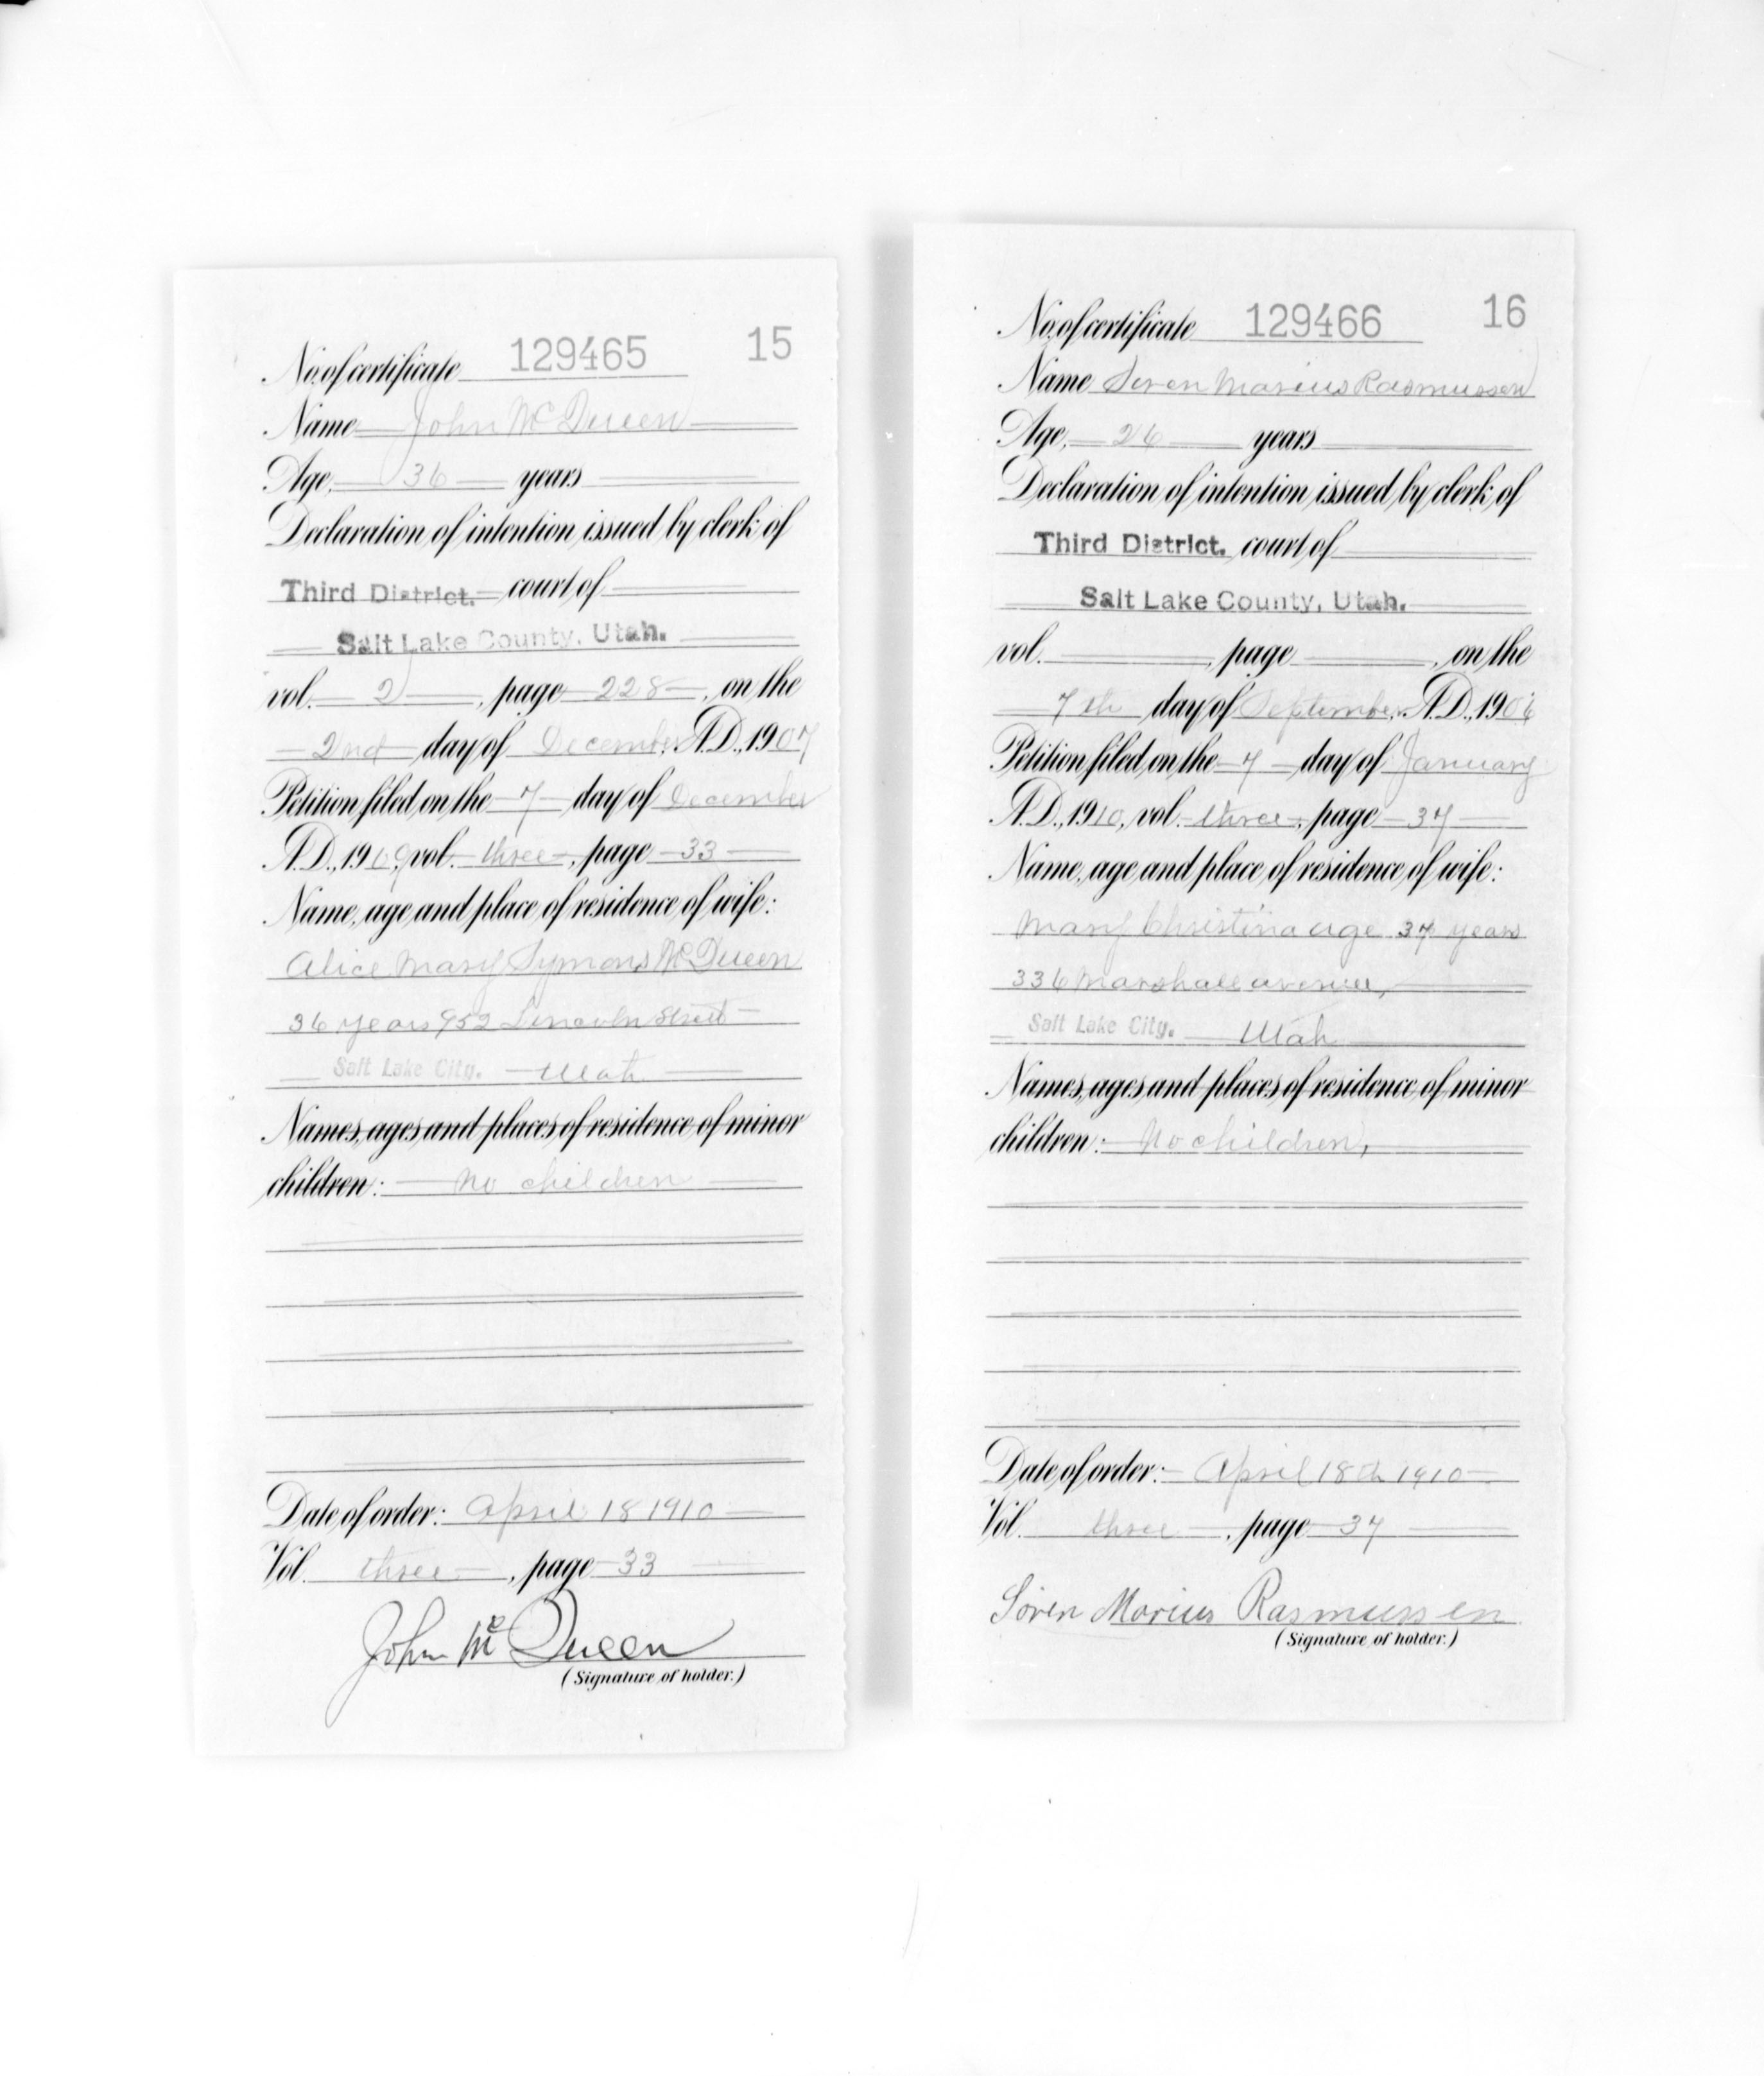 No. of certificate 129465 15
Name John McQueen
Age, 36 years
Declaration of intention issued by clerk of
Third District. court of
Salt Lake County, Utah.
vol. 2, page 228, on the
2nd day of December, A.D., 1907
Petition filed on the 7 day of December
A.D., 1909, vol. three, page 33
Name, age and place of residence of wife:
Alice Mary Symons McQueen
36 years 952 Lincoln Street
Salt Lake City. Utah
Names, ages and places of residence of minor
children: No children
Date of order: April 18 1910
Vol. three, page 33
John McQueen
(Signature of holder.)
No. of certificate 129466 16
Name Soren Marius Rasmussen
Age, 26 years
Declaration of intention issued by clerk of
Third District. court of
Salt Lake County, Utah.
vol. , page , on the
7th day of September, A.D., 1906
Petition filed on the 7 day of January
A.D., 1910, vol. three, page 37
Name, age and place of residence of wife:
Mary Christina age 37 years
336 Marshall avenue,
Salt Lake City. Utah
Names, ages and places of residence of minor
children: No children,
Date of order: April 18th 1910
Vol. three, page 37
Soren Marius Rasmussen
(Signature of holder.)